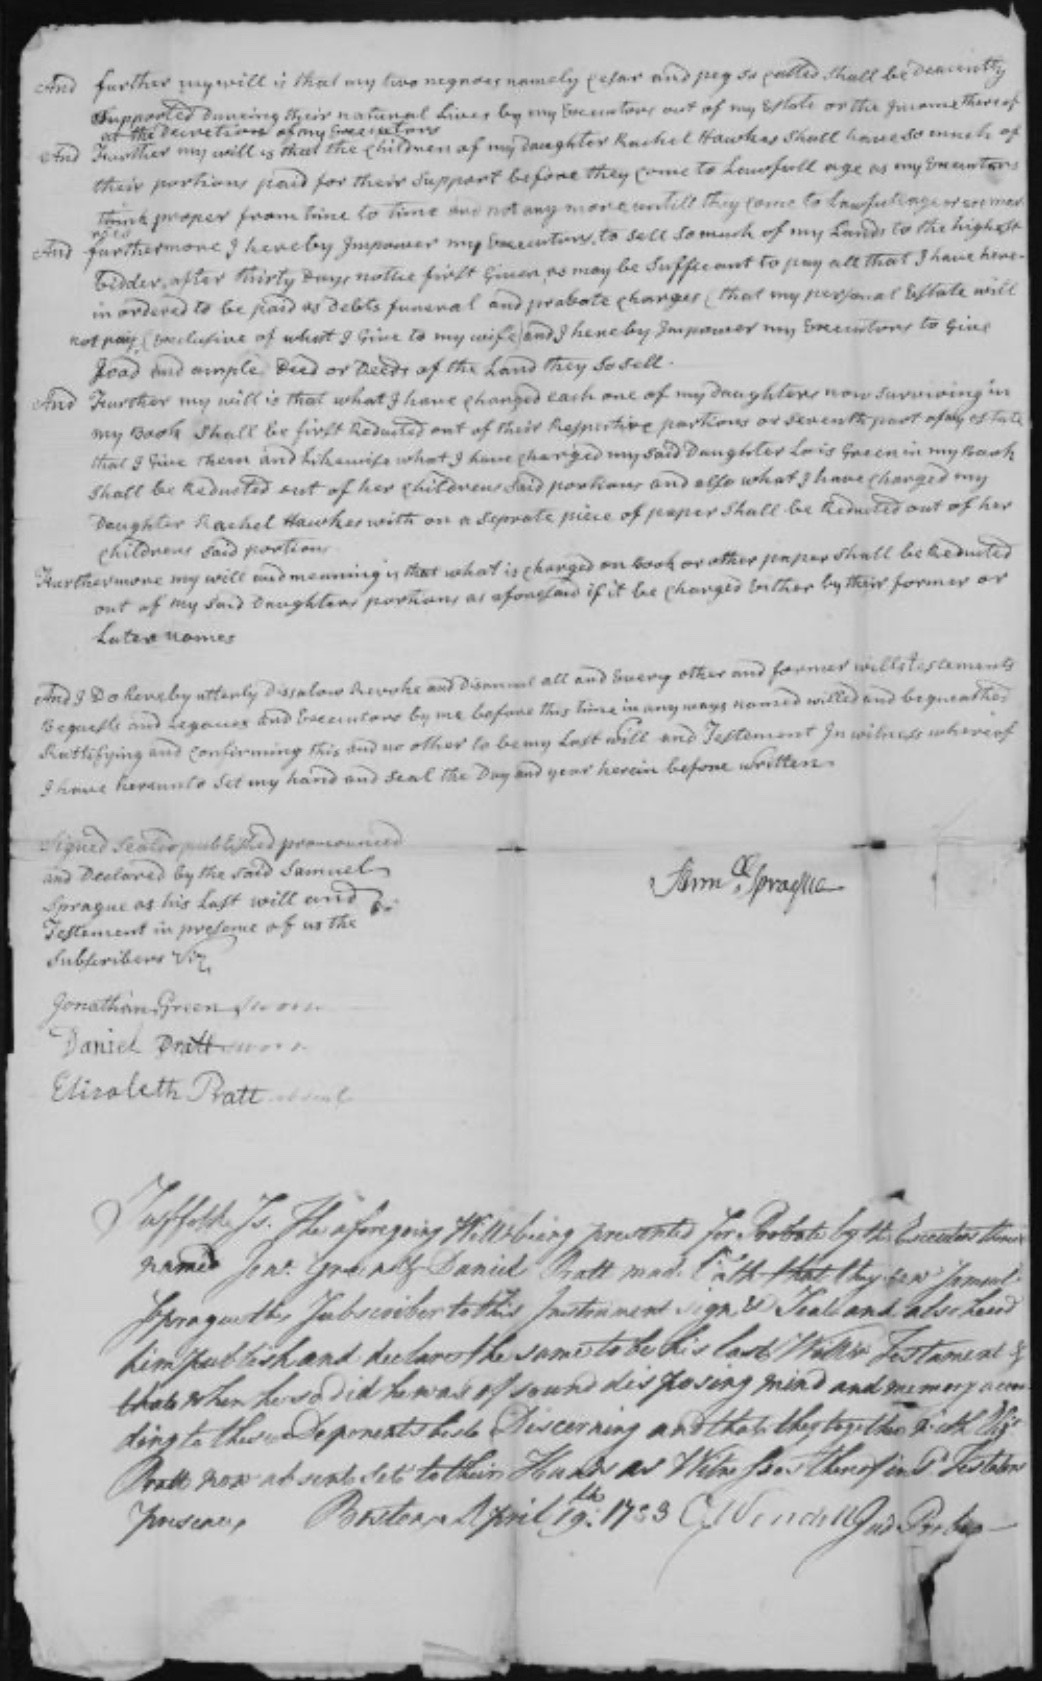 And further my will is that my two negroes namely Cesar and peg so called shall be deacently
Supported dureing their natural Lives by my Executors out of my Estate or the Income thereof
at the discretion of my Executors
And Further my will is that the children of my Daughter Rachel Hawkes shall have so much of
their portions paid for their Support before they come to Lawfull age as my Executors
think proper from time to time and not any more untill they come to Lawful age or
And furthermore I hereby Impower my Executors, to sell so much of my Lands to the highest
bidder, after thirty Days notice first Given as may be Sufficient to pay all that I have here-
in ordered to be paid as Debts funeral and probate charges (that my personal Estate will
not pay (Exclusive of what I Give to my wife) and I hereby Impower my Executors to Give
Good and ample Deed or Deeds of the Land they so sell.
And Further my will is that what I have charged each one of my Daughters now surviving in
my Book Shall be first Deducted out of their Respective portions or seventh part of my estate
that I Give them and Likewise what I have charged my said Daughter Lois Green in my Book
Shall be Deducted out of her childrens said portions and also what I have charged my
Daughter Rachel Hawkes with on a seprate piece of paper Shall be Deducted out of her
childrens said portions
Furthermore my will and meaning is that what is charged on Book or other paper shall be Deducted
out of my said Daughters portions as aforesaid if it be charged Either by their former or
Later names
And I Do hereby utterly Dissalow Revoke and Disannul all and Every other and former wills testements
Bequests and Legaces and Executors by me before this time in any ways named willed and bequeathed
Rattifying and confirming this and no other to be my Last will and Testement In witness whereof
I have hereunto set my hand and seal the Day and year herein before written
Signed sealed published pronounced
and Declared by the said Samuel
Sprague as his Last will and
Testement in presence of us the
Subscribers Viz
Samll Sprague
Jonathan Green sworn
Daniel Pratt sworn
Elizabeth Pratt absent
Suffolk Ss. The aforegoing Will being presented for Probate by the Executors therein
named Jona. Green & Daniel Pratt made Oath that they saw Samuel
Sprague the Subscriber to this Instrument sign & Seal and also heard
him publish and declare the same to be his last Will & Testament &
that when he so did he was of sound disposing mind and memory accor-
ding to these Deponents best Discerning and that they together with Eliza
Pratt now absent set to their Hands as Witnesses thereof in sd. Testators
presence, Boston April 19th. 1783 O Wendell Jud Probe